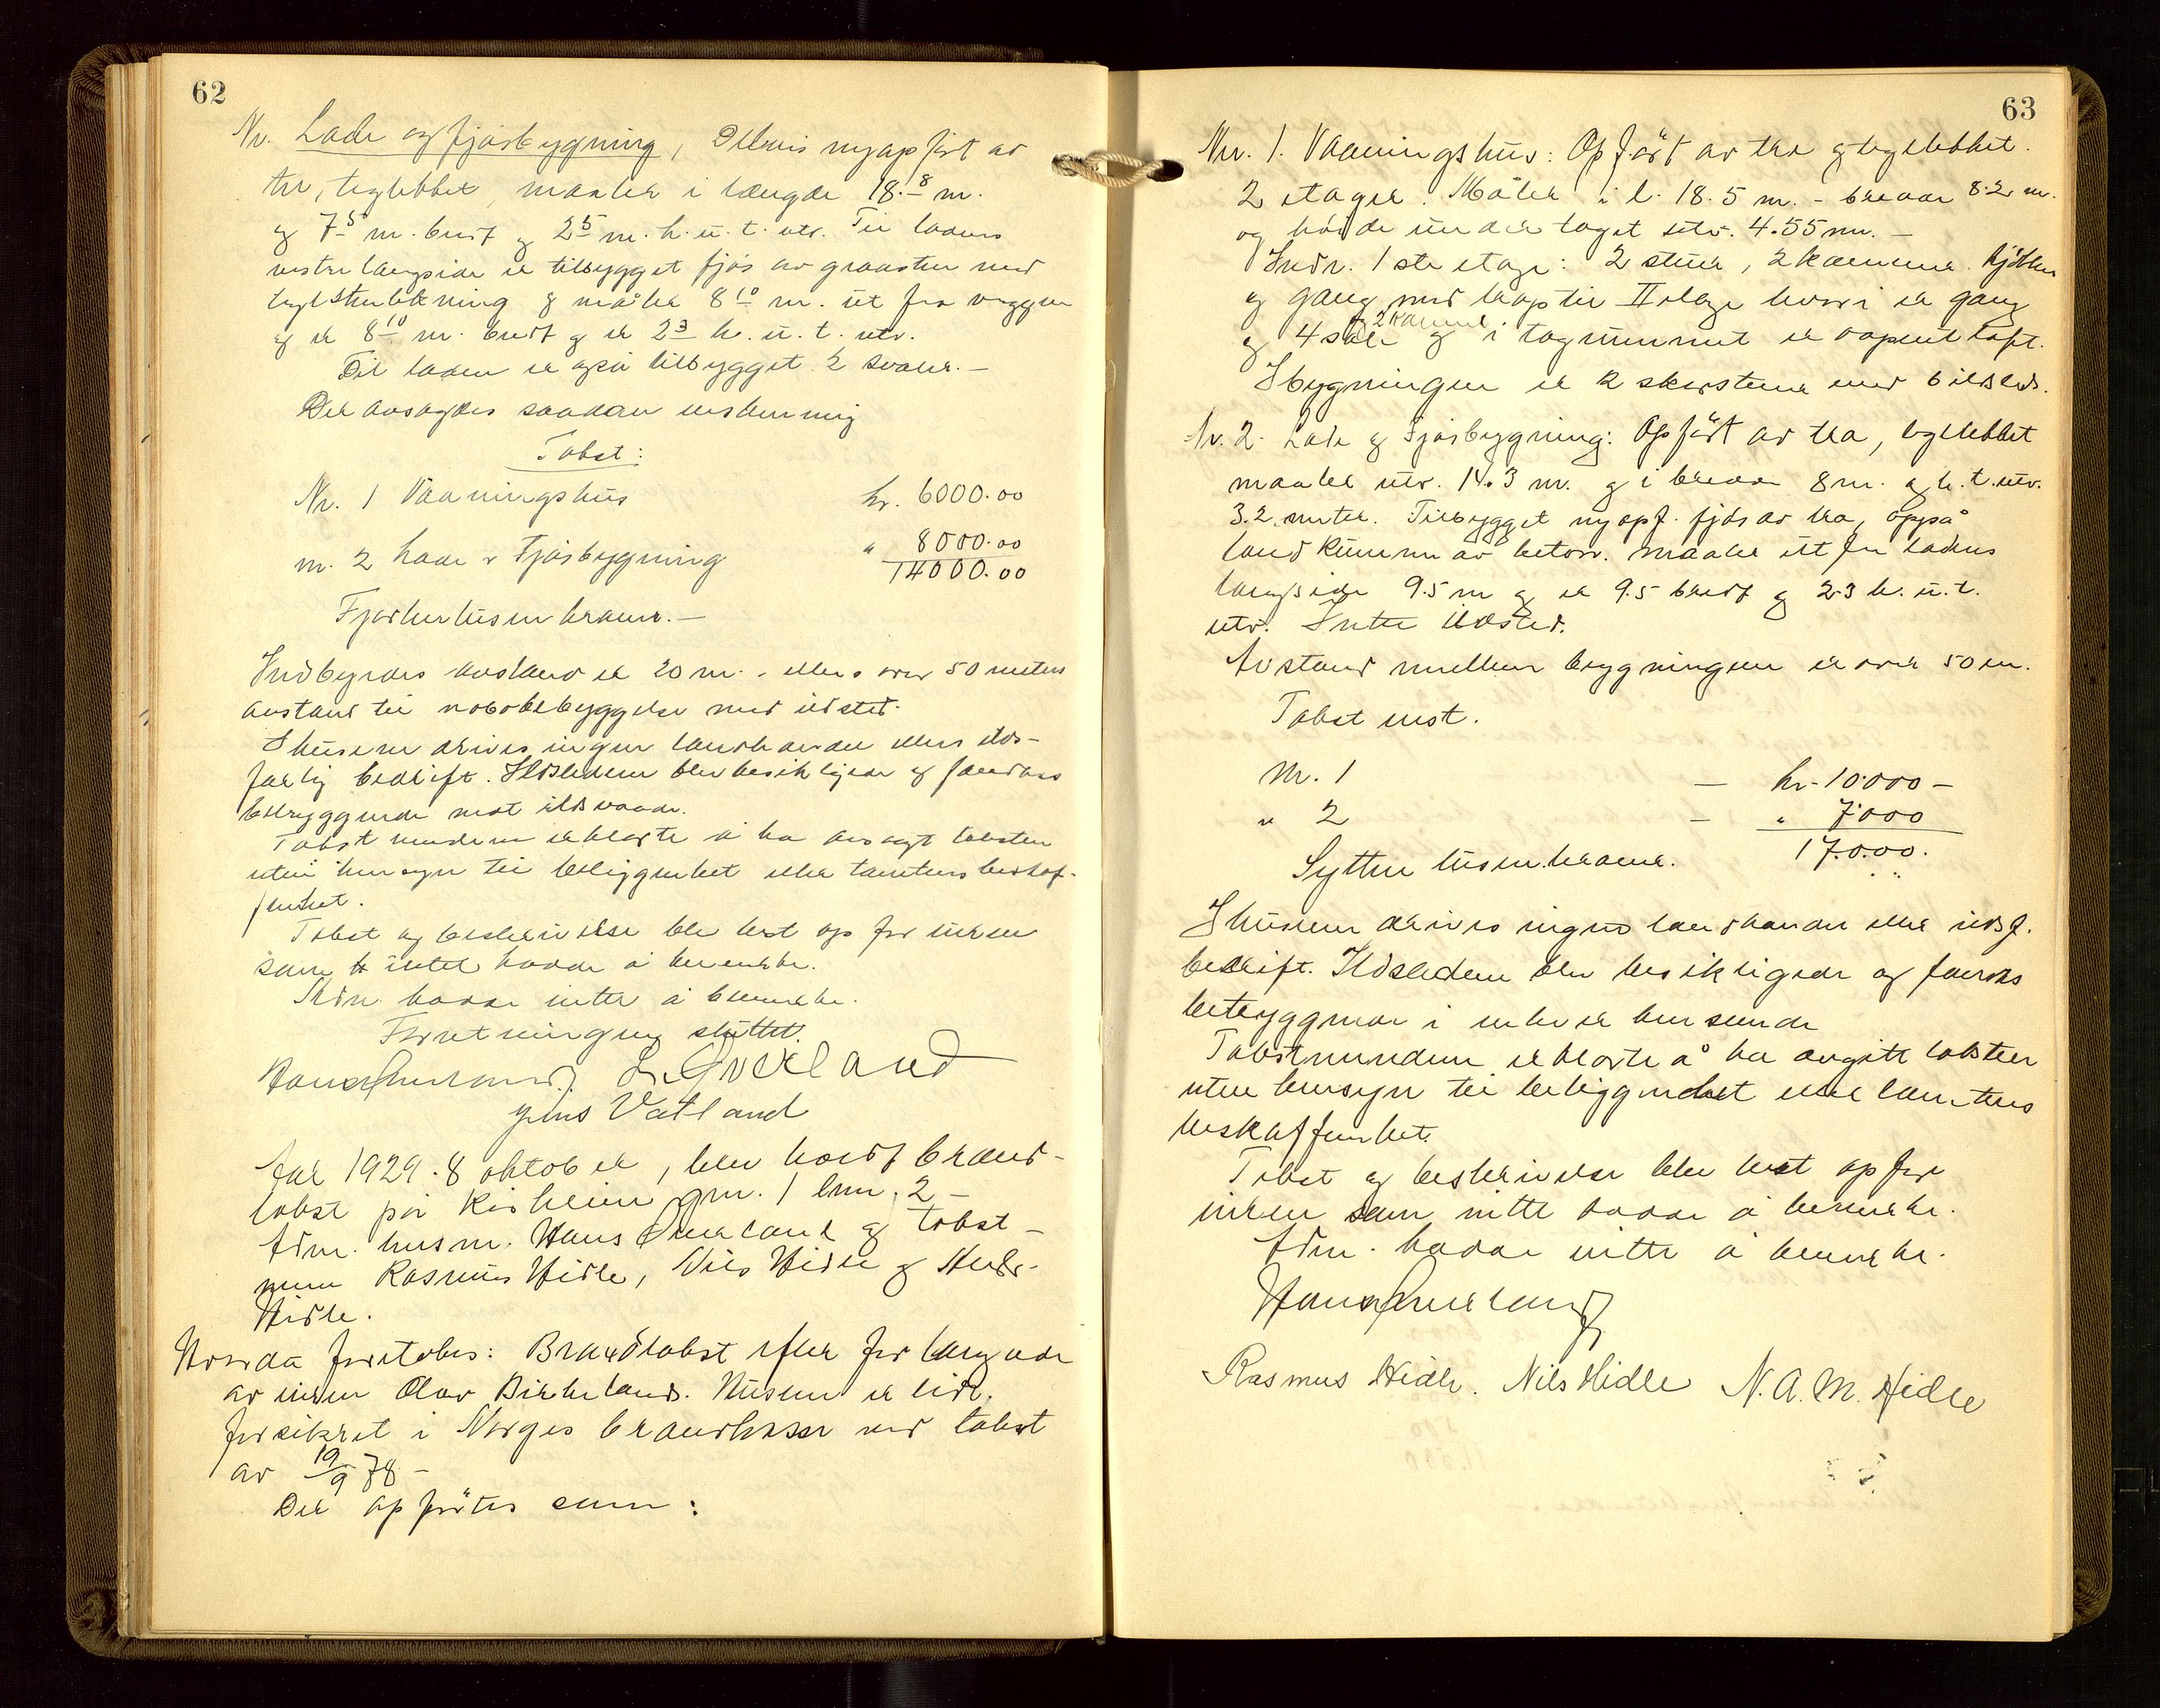 62
Nr. Lade og fjøsbygning, Delvis nyopført av
tre, teglteket, maaler i længde 18.8 m.
og 7.5 m. bredt og 2.5 m. h. u. t. utv. Til ladens
vestre langside er tilbygget fjøs av graasten med
teglstentekning og måler 8.10 m. ut fra veggen
og er 8.10 m. bredt og er 2.3 h. u. t. utv.
Til laden er også tilbygget 2 svaler. -
Der avsagdes saadan enstemmig
Takst:
Nr. 1 Vaaningshus kr. 6000.00
nr. 2 Lade & Fjøsbygning " 8000.00
14000.00
Fjortentusen kroner. -
Indbyrdes avstand er 20 m. - ellers over 50 meters
avstand til nabobebyggelse med ildsted.
I husene drives ingen landhandel eller ilds-
farlig bedrift. Ildstedene blev besiktiget og fandtes
betryggende mot ildsvaade.
Takstmendene erklærte å ha avsagt taksten
uten hensyn til beliggenhet eller tomtens beskaf-
fenhet.
Takst og beskrivelse ble lest op for eieren
som intet hadde å bemerke.
Adm. hadde intet å bemerke.
Forretningen sluttet.
L. Goveland
Jens Vatland
Aar 1929. 8 oktober, blev holdt brand-
takst på gnr. 1 bnr. 2 -
Adm. husm. Hans og takst-
menn Rasmus Hidle, Nils Hidle og
Hidle.
Hvorda foretokes: Brandtakst efter forlangende
av eieren Olav Birkeland. Husene er tidl.
forsikret i Norges brandkasse ved takst
av 19/9 78 -
Der opførtes som:
63
Nr. 1. Vaaningshus: Opført av tre og teglteket.
2 etager. Måler i l. 18.5 m. - bredde 8.2 m.
og høide under taget utv. 4.55 m. -
Indr. 1ste etage: 2 stuer, 2 kammer kjøkken
og gang med trap til II etage hvori er gang
og 2 kammer
og 4 saler og i tagrummet er aapent loft.
I bygningen er 2 skorstene med 6 ildsteds.
Nr. 2. Lade og Fjøsbygning: Opført av tre, teglteket
maaler utv. 14.3 m. og i bredde 8 m. og h. t. utv.
3.2 meter. Tilbygget nyopf. fjøs av tre, også
landkummen av betong. maaler ut fra ladens
langside 9.5 m og er 9.5 bredt og 2.3 h. u. t.
utv. Intet ildsted.
Avstand mellem bygningene er over 50 m.
Takst enst.
Nr. 1 - kr. 10000 -
" 2 - " 7000
17000.
Sytten tusen kroner.
I husene drives ingen landhandel eller ildsf.
bedrift. Ildstedene blev besiktiget og fandtes
betryggende i enhver henseende
Takstmendene erklærte å ha avgitt taksten
uten hensyn til beliggenhet eller tomtens
beskaffenhet.
Takst og beskrivelse blev lest op for
eieren som intet hadde å bemerke.
Adm. hadde intet å bemerke.
Rasmus Hidle. Nils Hidle N. A. M. Hidle